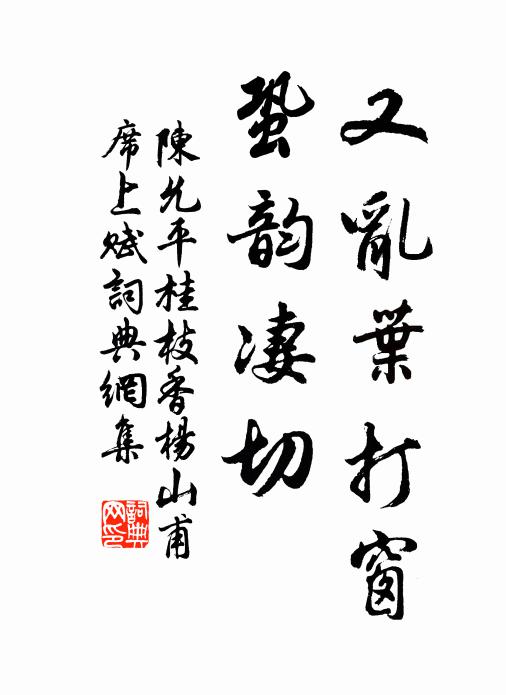 又亂葉打窗
蛩韵凄切
陳允平桂枝香楊山甫
席上賦詞典網集
詞典网印